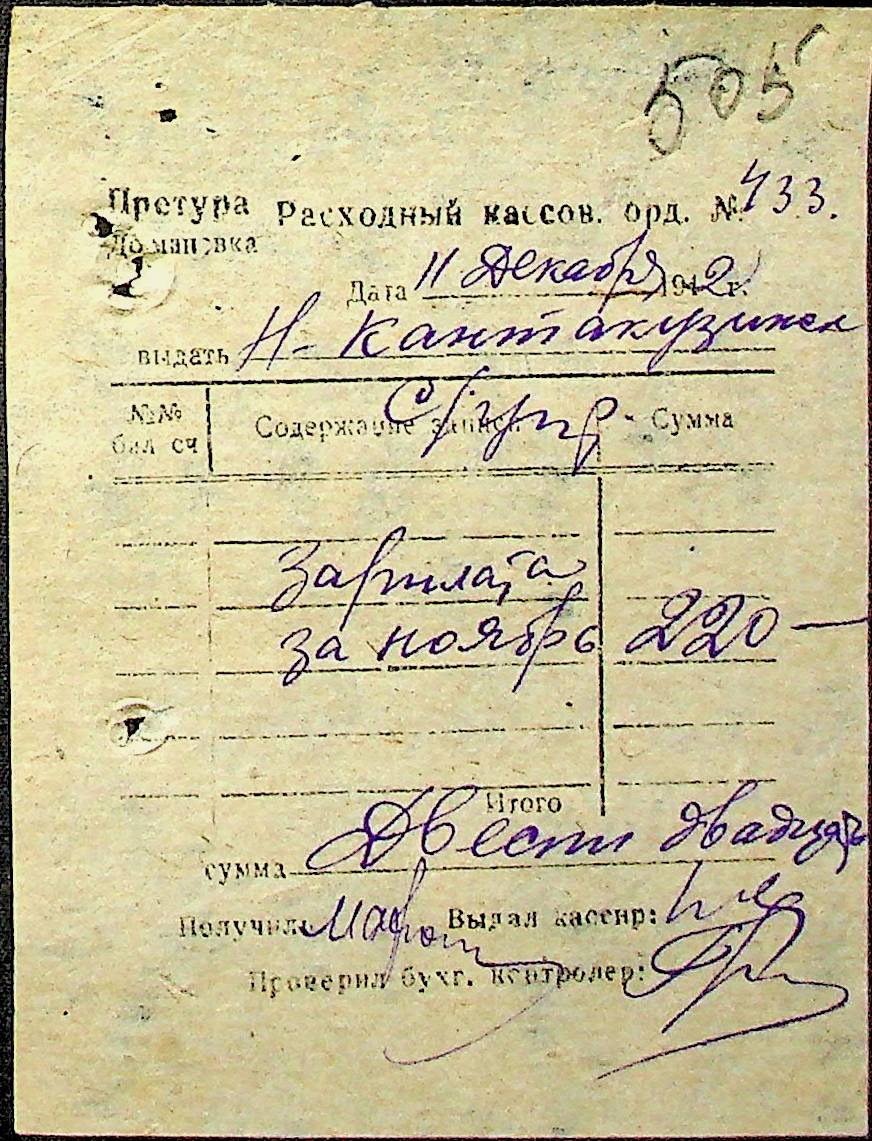 505
Претура Расходный кассов. орд. № 433.
Домановка
Дата 11 Декабря 1942 г.
выдать Н- Кантакузинск
№№ бил сч Содержание записи Сумма
С/упр.
Зарплата
за ноябрь 220 —
Итого
сумма Двести двадцать
Получил Выдал кассир:
Проверил бухг. контролер: